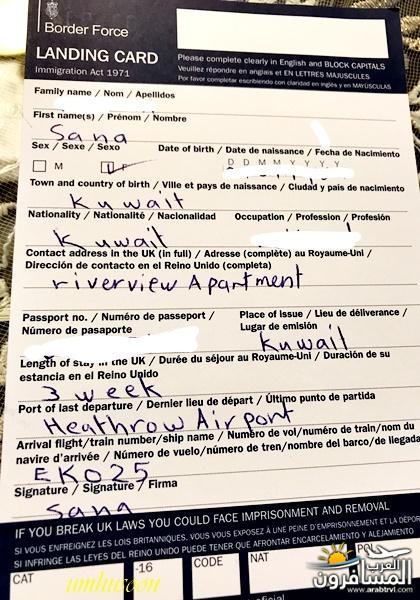 Border Force
LANDING CARD
Immigration Act 1971
Please complete clearly in English and BLOCK CAPITALS
Veuillez répondre en anglais et EN LETTRES MAJUSCULES
Por favor completar escribiendo con claridad en inglés y en MAYÚSCULAS
Family name / Nom / Apellidos
First name(s) / Prénom / Nombre
Sana
Sex / Sexe / Sexo
Date of birth / Date de naissance / Fecha de Nacimiento
M F
D D M M Y Y Y Y
Town and country of birth / Ville et pays de naissance / Ciudad y país de nacimiento
Kuwait
Nationality / Nationalité / Nacionalidad
Occupation / Profession / Profesión
Kuwait
Contact address in the UK (in full) / Adresse (complète) au Royaume-Uni /
Dirección de contacto en el Reino Unido (completa)
riverview Apartment
Passport no. / Numéro de passeport /
Número de pasaporte
Place of issue / Lieu de délivrance /
Lugar de emisión
Kuwait
Length of stay in the UK / Durée du séjour au Royaume-Uni / Duración de su
estancia en el Reino Unido
3 week
Port of last departure / Dernier lieu de départ / Último punto de partida
Heathrow Airport
Arrival flight/train number/ship name / Numéro de vol/numéro de train/nom du
navire d'arrivée / Número de vuelo/número de tren/nombre del barco/de llegada
EK025
Signature / Signature / Firma
Sana
IF YOU BREAK UK LAWS YOU COULD FACE IMPRISONMENT AND REMOVAL
SI VOUS ENFREIGNEZ LES LOIS BRITANNIQUES, VOUS VOUS EXPOSEZ À UNE PEINE D'EMPRISONNEMENT ET LA DÉPOR
SI INFRINGE LAS LEYES DEL REINO UNIDO PUEDE TENER QUE AFRONTAR ENCARCELAMIENTO Y ALEJAMIENTO
CAT
-16
CODE
NAT
POL
العرب
المسافرون
www.arabtrvl.com